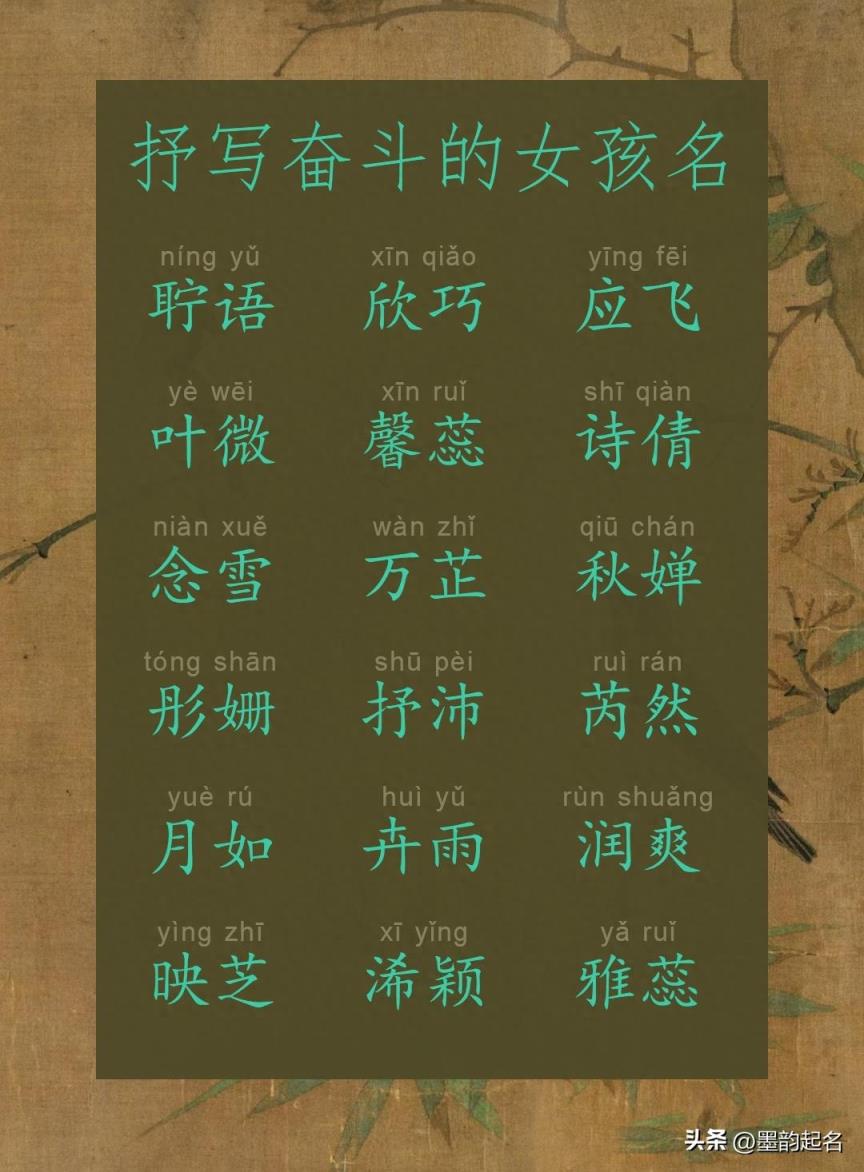 抒写奋斗的女孩名
níng yǔ xīn qiǎo yīng fēi
聍语 欣巧 应飞
yè wēi xīn ruǐ shī qiàn
叶微 馨蕊 诗倩
niàn xuě wàn zhǐ qiū chán
念雪 万芷 秋婵
tóng shān shū pèi ruì rán
彤姗 抒沛 芮然
yuè rú huì yǔ rùn shuǎng
月如 卉雨 润爽
yìng zhī xī yǐng yǎ ruǐ
映芝 浠颖 雅蕊
头条 @墨韵起名